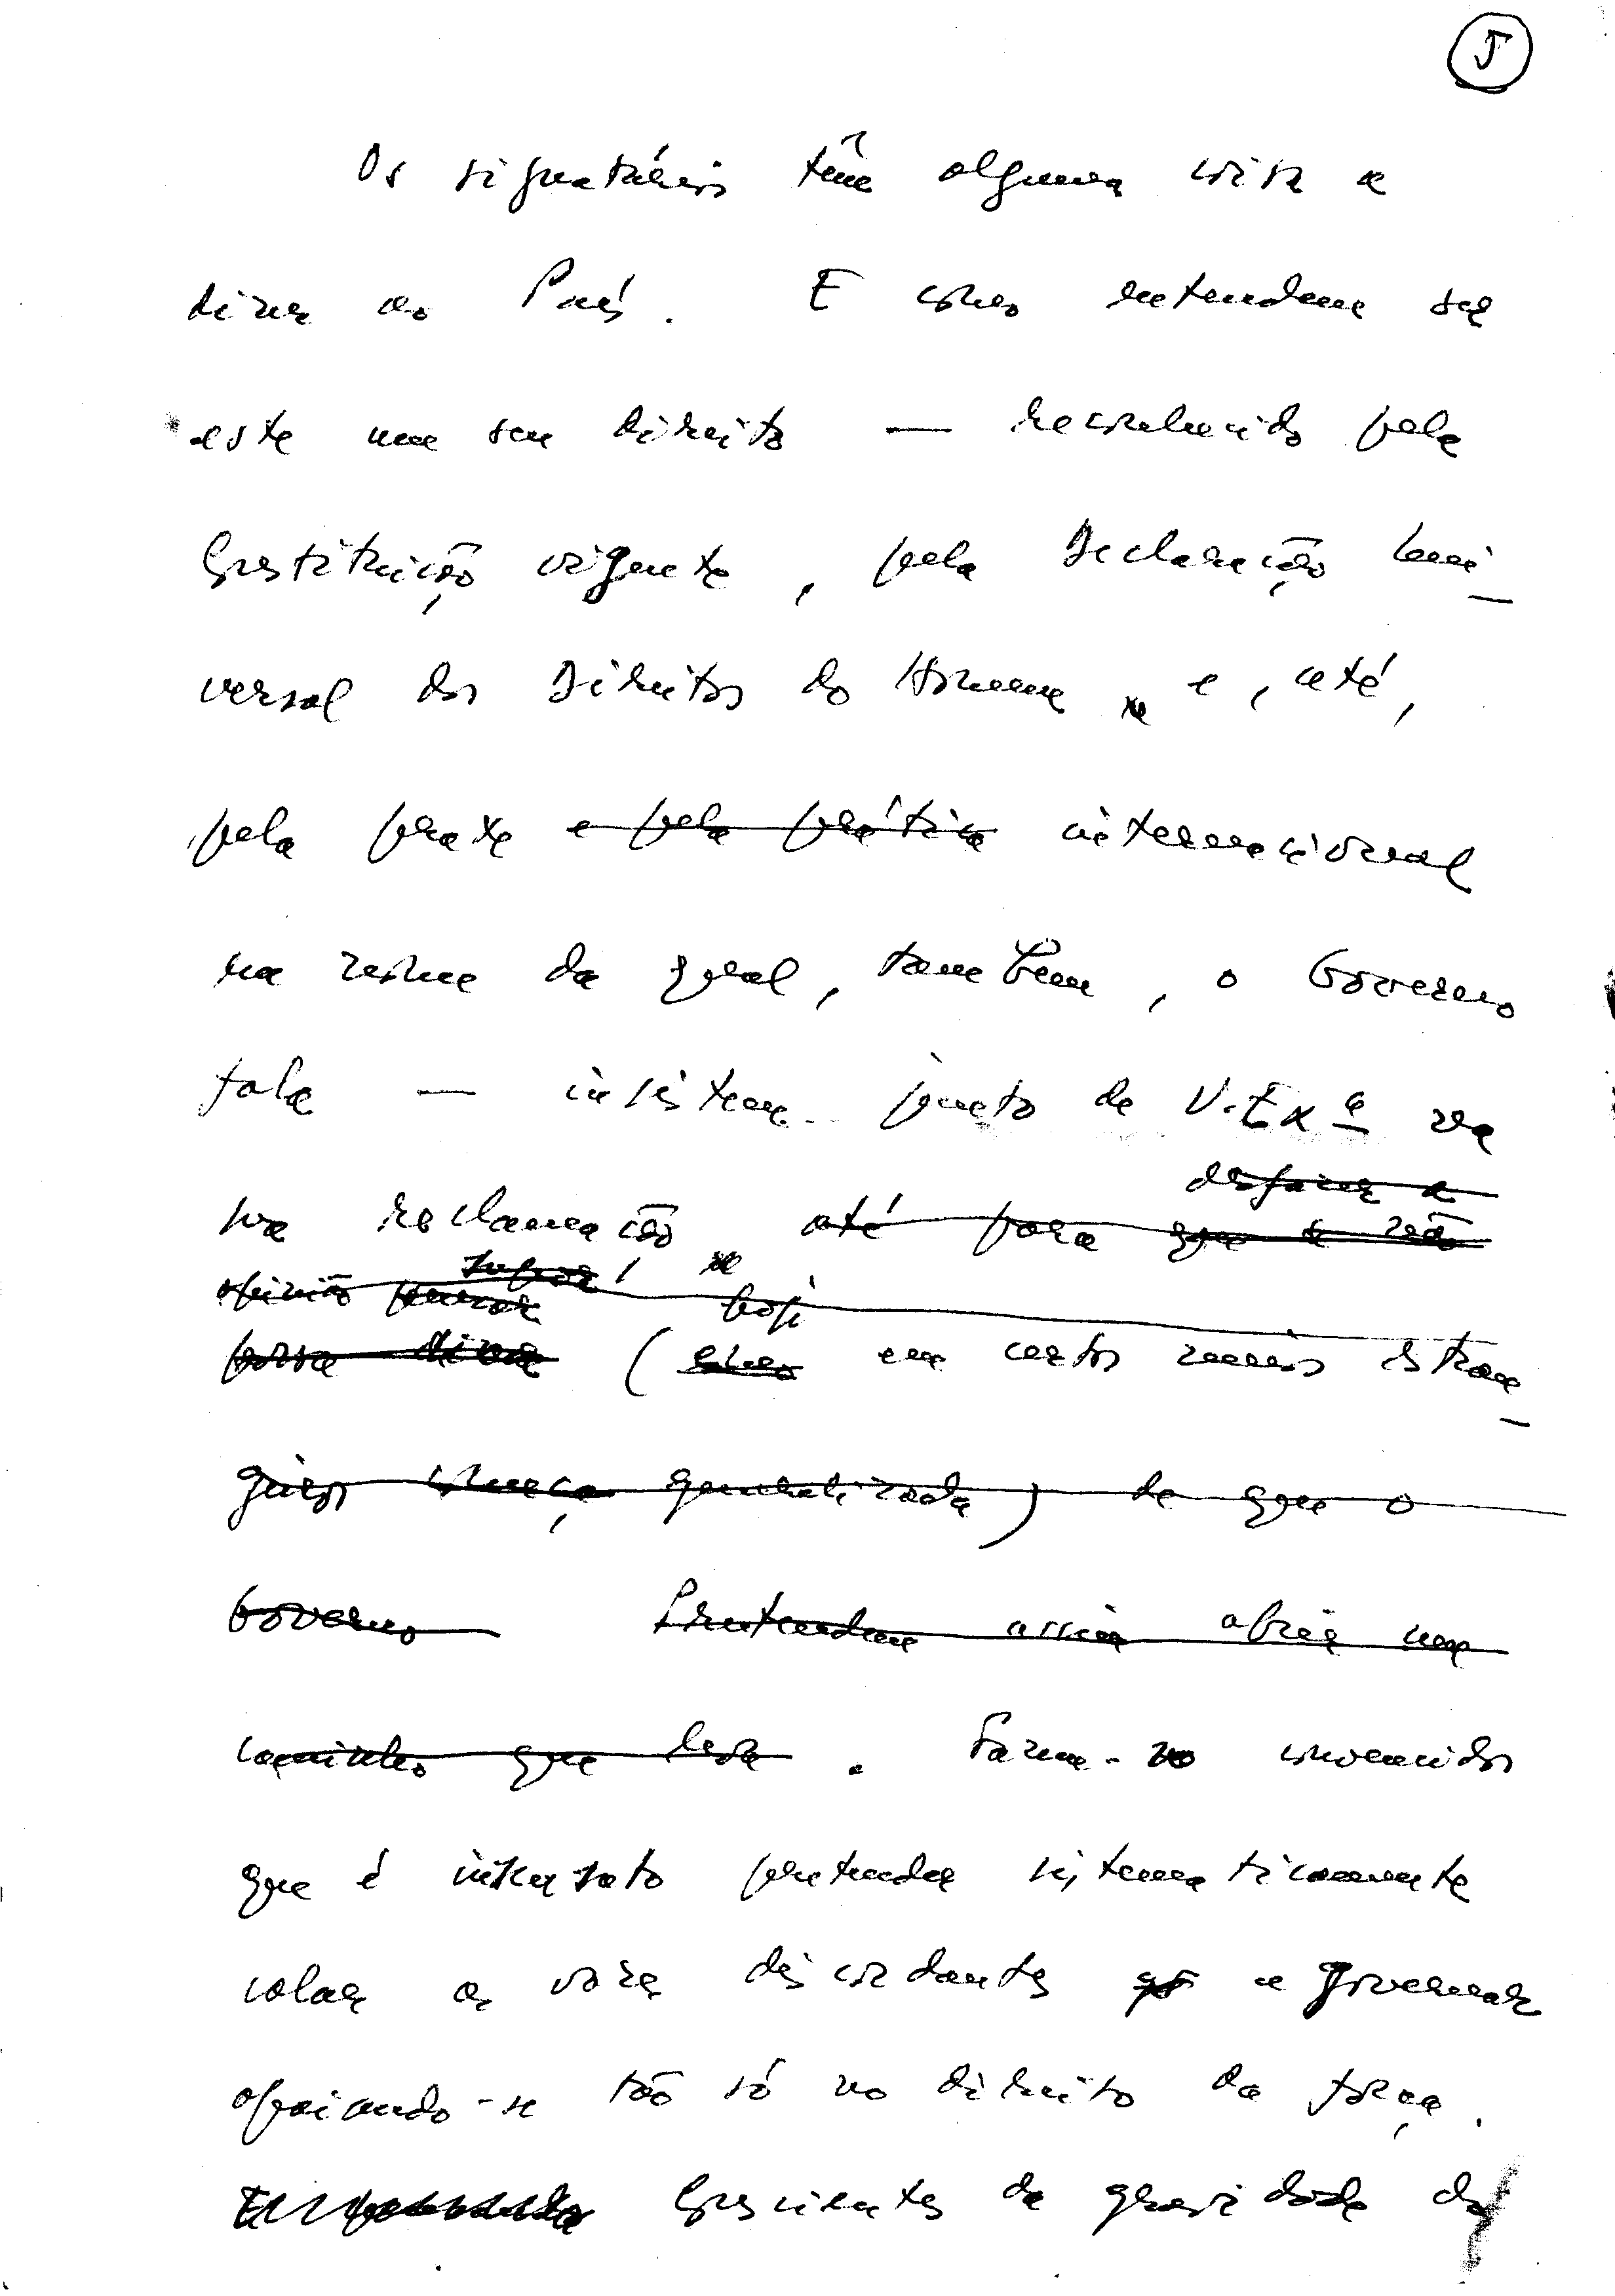 5
Os signatários têm alguma coisa a
dizer ao País. E como entendem ser
este um seu direito — reconhecido pela
Constituição vigente, pela Declaração Uni-
versal dos Direitos do Homem e, até,
pela praxe e pela prática internacional
em nome da qual, também, o Governo
fala — insistem junto de V. Exª na
sua reclamação até para que se não
opinião
possa dizer ( em certos meios estran-
geiros começa generalizada) de que o
Governo Pretendem assim abrir um
caminho que leva. Fazem-no convencidos
que é insensato pretender sistematicamente
calar as vozes discordantes e governar
apoiando-se tão só no direito da força.
Conscientes da gravidade da